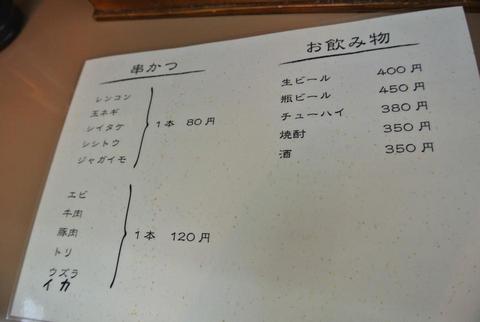 串かつ
レンコン
玉ネギ
シイタケ
シシトウ
ジャガイモ
1本 80円
エビ
牛肉
豚肉
トリ
ウズラ
イカ
1本 120円
お飲み物
生ビール 400円
瓶ビール 450円
チューハイ 380円
焼酎 350円
酒 350円